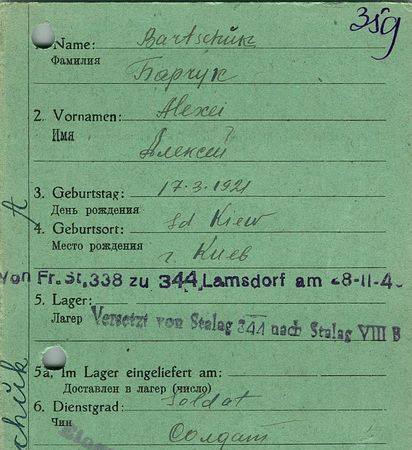 359
Name: Bartschuk
Фамилия Барчук
2. Vornamen: Alexei
Имя
Алексей
3. Geburtstag: 17.3.1921
День рождения
4. Geburtsort: Sd Kiew
Место рождения г. Киев
Von Fr.St.338 zu 344 Lamsdorf am 28-11-4
5. Lager:
Лагерь Versetzt von Stalag 344 nach Stalag VIII B
5a, Im Lager eingeliefert am:
Доставлен в лагерь (число)
6. Dienstgrad: Soldat
Чин
Солдат